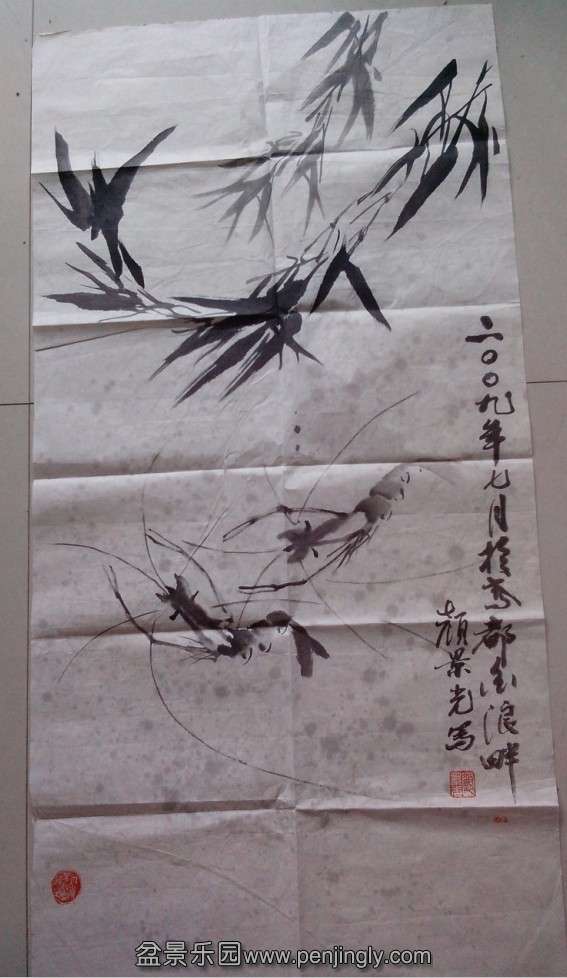 二〇〇九年七月於鸢都白浪畔
颜景光写
盆景乐园www.penjingly.com